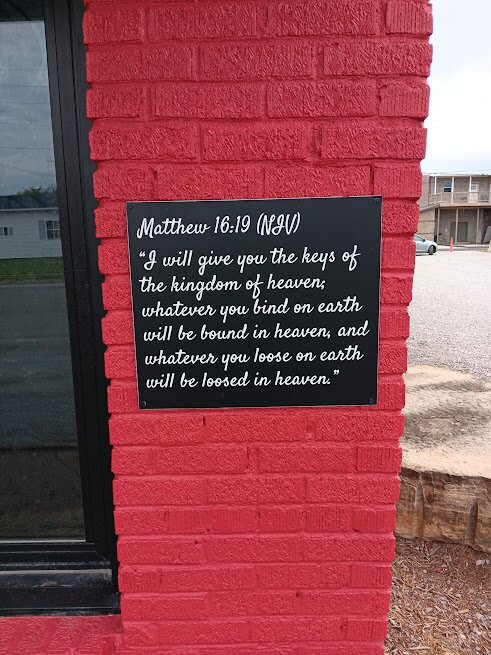 Matthew 16:19 (NIV)
“I will give you the keys of
the kingdom of heaven;
whatever you bind on earth
will be bound in heaven, and
whatever you loose on earth
will be loosed in heaven.”